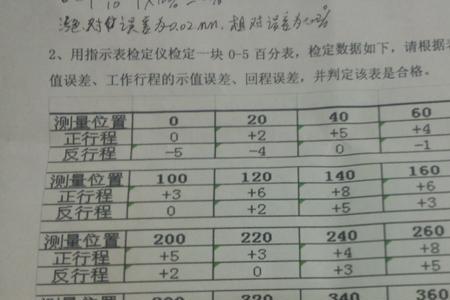 绝对误差为0.02mm,相对误差为
2、用指示表检定仪检定一块 0-5 百分表，检定数据如下，请根据
值误差、工作行程的示值误差、回程误差，并判定该表是合格。
测量位置 0 20 40 60
正行程 0 +2 +5 +4
反行程 -5 -4 0 -1
测量位置 100 120 140 160
正行程 +3 +6 +8 +6
反行程 0 +2 +5 +3
测量位置 200 220 240 260
正行程 +5 +3 +4 +8
反行程 +2 0 +3 +5
测量位置 300 320 340 360